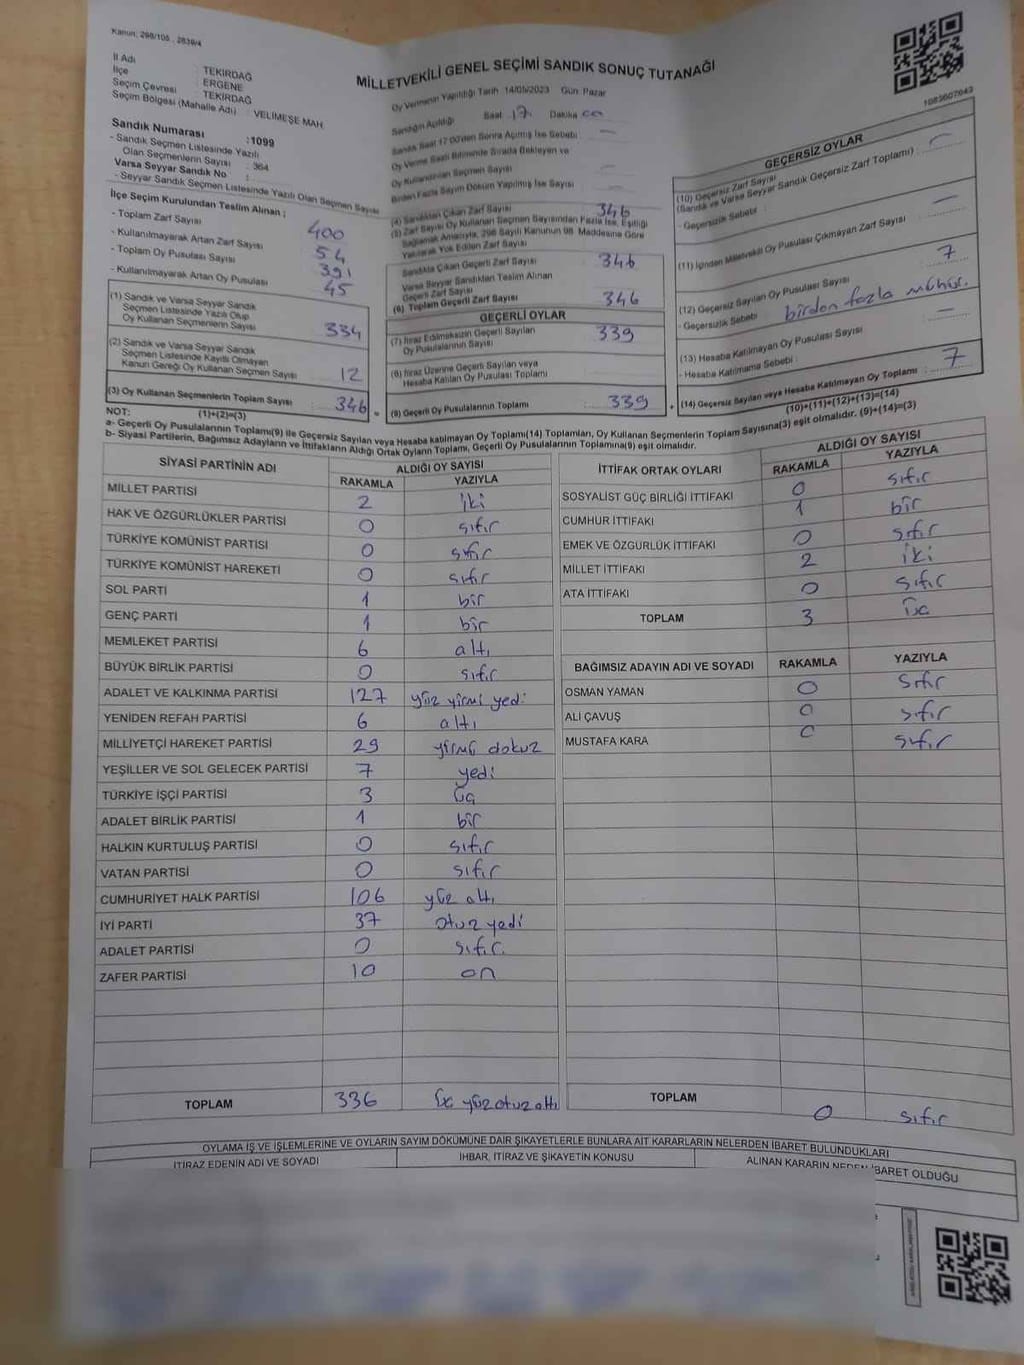 Kanun; 298/105 , 2839/4
İl Adı : TEKİRDAĞ
İlçe : ERGENE
Seçim Çevresi : TEKİRDAĞ
Seçim Bölgesi (Mahalle Adı) : VELİMEŞE MAH.
MİLLETVEKİLİ GENEL SEÇİMİ SANDIK SONUÇ TUTANAĞI
1083607043
Sandık Numarası :1099
- Sandık Seçmen Listesinde Yazılı
Olan Seçmenlerin Sayısı : 364
Varsa Seyyar Sandık No :
- Seyyar Sandık Seçmen Listesinde Yazılı Olan Seçmen Sayısı
İlçe Seçim Kurulundan Teslim Alınan ;
- Toplam Zarf Sayısı 400
- Kullanılmayarak Artan Zarf Sayısı 54
- Toplam Oy Pusulası Sayısı 391
- Kullanılmayarak Artan Oy Pusulası 45
(1) Sandık ve Varsa Seyyar Sandık
Seçmen Listesinde Yazılı Olup
Oy Kullanan Seçmenlerin Sayısı 334
(2) Sandık ve Varsa Seyyar Sandık
Seçmen Listesinde Kayıtlı Olmayan
Kanun Gereği Oy Kullanan Seçmen Sayısı 12
(3) Oy Kullanan Seçmenlerin Toplam Sayısı 346
Oy Vermenin Yapıldığı Tarih 14/05/2023 Gün Pazar
Sandığın Açıldığı Saat 17 Dakika 00
Sandık Saat 17.00'den Sonra Açılmış İse Sebebi : —
Oy Verme Saati Bitiminde Sırada Bekleyen ve
Oy Kullandırılan Seçmen Sayısı —
Birden Fazla Sayım Döküm Yapılmış İse Sayısı —
(4) Sandıktan Çıkan Zarf Sayısı 346
(5) Zarf Sayısı Oy Kullanan Seçmen Sayısından Fazla İse, Eşitliği
Sağlamak Amacıyla, 298 Sayılı Kanunun 98. Maddesine Göre
Yakılarak Yok Edilen Zarf Sayısı
Sandıkta Çıkan Geçerli Zarf Sayısı 346
Varsa Seyyar Sandıktan Teslim Alınan
Geçerli Zarf Sayısı
(6) Toplam Geçerli Zarf Sayısı 346
GEÇERLİ OYLAR
(7) İtiraz Edilmeksizin Geçerli Sayılan
Oy Pusulalarının Sayısı 339
(8) İtiraz Üzerine Geçerli Sayılan veya
Hesaba Katılan Oy Pusulası Toplamı
(9) Geçerli Oy Pusulalarının Toplamı : 339
GEÇERSİZ OYLAR
(10) Geçersiz Zarf Sayısı
(Sandık ve Varsa Seyyar Sandık Geçersiz Zarf Toplamı) : —
- Geçersizlik Sebebi :
(11) İçinden Milletvekili Oy Pusulası Çıkmayan Zarf Sayısı —
(12) Geçersiz Sayılan Oy Pusulası Sayısı 7
- Geçersizlik Sebebi : birden fazla mühür.
(13) Hesaba Katılmayan Oy Pusulası Sayısı —
- Hesaba Katılmama Sebebi :
(14) Geçersiz Sayılan veya Hesaba Katılmayan Oy Toplamı : 7
NOT: (1)+(2)=(3) (10)+(11)+(12)+(13)=(14)
a- Geçerli Oy Pusulalarının Toplamı(9) ile Geçersiz Sayılan veya Hesaba katılmayan Oy Toplamı(14) Toplamları, Oy Kullanan Seçmenlerin Toplam Sayısına(3) eşit olmalıdır. (9)+(14)=(3)
b- Siyasi Partilerin, Bağımsız Adayların ve İttifakların Aldığı Ortak Oyların Toplamı, Geçerli Oy Pusulalarının Toplamına(9) eşit olmalıdır.
SİYASİ PARTİNİN ADI ALDIĞI OY SAYISI
RAKAMLA YAZIYLA
MİLLET PARTİSİ 2 iki
HAK VE ÖZGÜRLÜKLER PARTİSİ 0 sıfır
TÜRKİYE KOMÜNİST PARTİSİ 0 sıfır
TÜRKİYE KOMÜNİST HAREKETİ 0 sıfır
SOL PARTİ 1 bir
GENÇ PARTİ 1 bir
MEMLEKET PARTİSİ 6 altı
BÜYÜK BİRLİK PARTİSİ 0 sıfır
ADALET VE KALKINMA PARTİSİ 127 yüz yirmi yedi
YENİDEN REFAH PARTİSİ 6 altı
MİLLİYETÇİ HAREKET PARTİSİ 29 yirmi dokuz
YEŞİLLER VE SOL GELECEK PARTİSİ 7 yedi
TÜRKİYE İŞÇİ PARTİSİ 3 üç
ADALET BİRLİK PARTİSİ 1 bir
HALKIN KURTULUŞ PARTİSİ 0 sıfır
VATAN PARTİSİ 0 sıfır
CUMHURİYET HALK PARTİSİ 106 yüz altı
İYİ PARTİ 37 otuz yedi
ADALET PARTİSİ 0 sıfır
ZAFER PARTİSİ 10 on
TOPLAM 336 üç yüz otuz altı
İTTİFAK ORTAK OYLARI ALDIĞI OY SAYISI
RAKAMLA YAZIYLA
SOSYALİST GÜÇ BİRLİĞİ İTTİFAKI 0 sıfır
CUMHUR İTTİFAKI 1 bir
EMEK VE ÖZGÜRLÜK İTTİFAKI 0 sıfır
MİLLET İTTİFAKI 2 iki
ATA İTTİFAKI 0 sıfır
TOPLAM 3 üç
BAĞIMSIZ ADAYIN ADI VE SOYADI RAKAMLA YAZIYLA
OSMAN YAMAN 0 sıfır
ALİ ÇAVUŞ 0 sıfır
MUSTAFA KARA 0 sıfır
TOPLAM 0 sıfır
OYLAMA İŞ VE İŞLEMLERİNE VE OYLARIN SAYIM DÖKÜMÜNE DAİR ŞİKAYETLERLE BUNLARA AİT KARARLARIN NELERDEN İBARET BULUNDUKLARI
İTİRAZ EDENİN ADI VE SOYADI İHBAR, İTİRAZ VE ŞİKAYETİN KONUSU ALINAN KARARIN NEDEN İBARET OLDUĞU